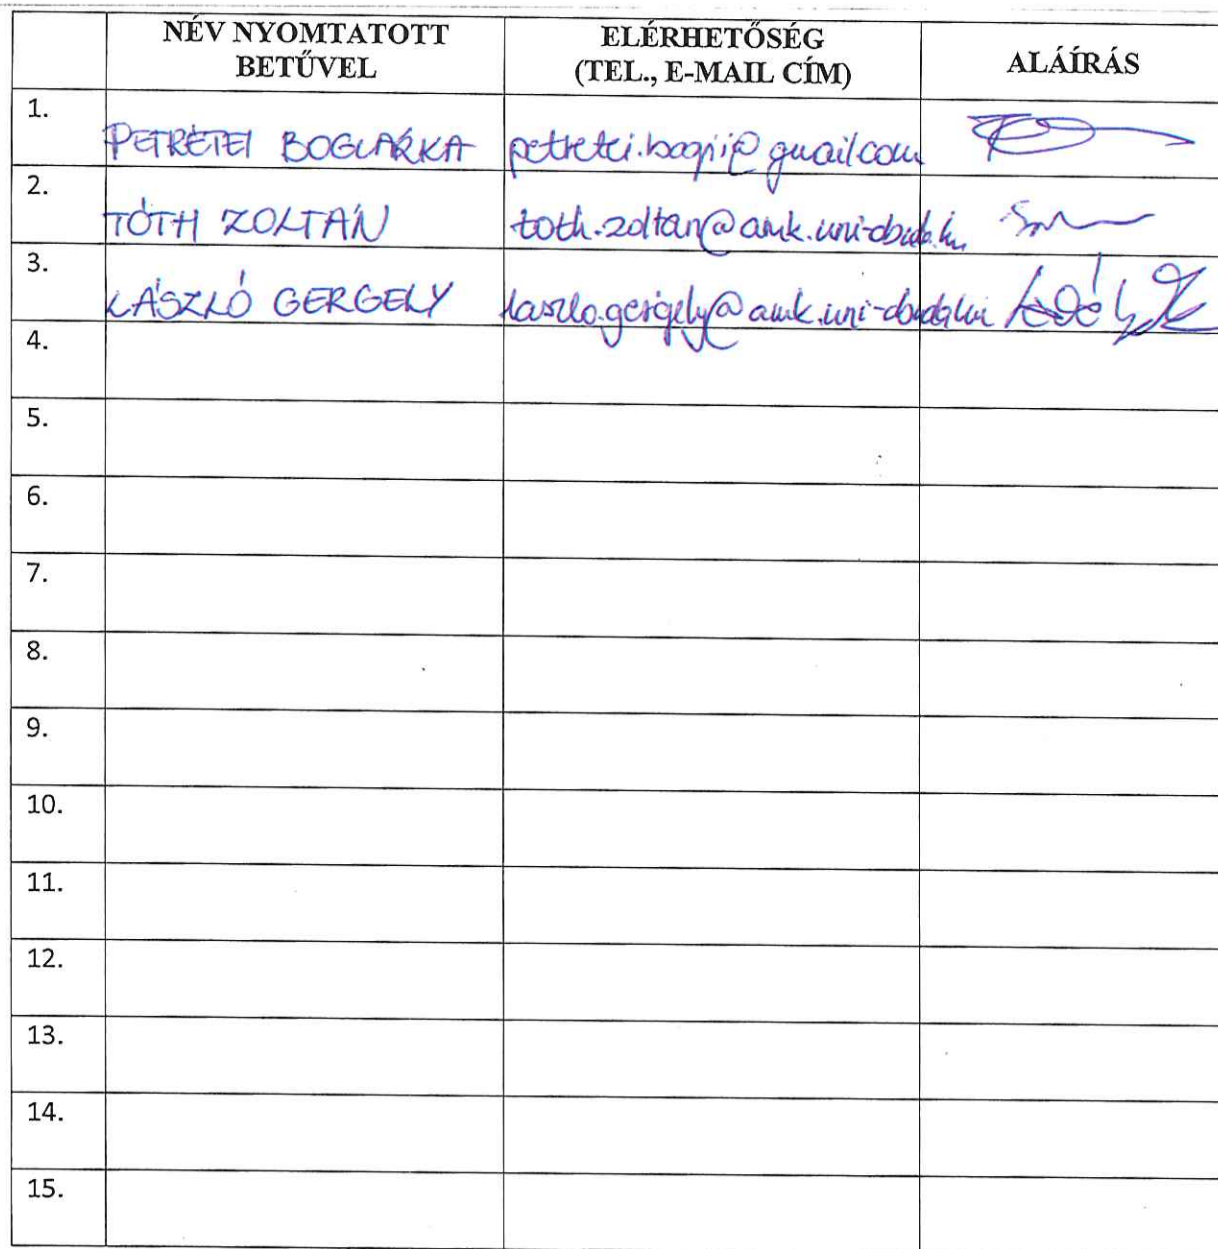 NÉV NYOMTATOTT BETŰVEL ELÉRHETŐSÉG (TEL., E-MAIL CÍM) ALÁÍRÁS
1. PETRÉTEI BOGLÁRKA petretei.bogii@gmail.com
2. TÓTH ZOLTÁN toth.zoltan@amk.uni-obuda.hu
3. LÁSZLÓ GERGELY laszlo.gergely@amk.uni-obuda.hu
4.
5.
6.
7.
8.
9.
10.
11.
12.
13.
14.
15.